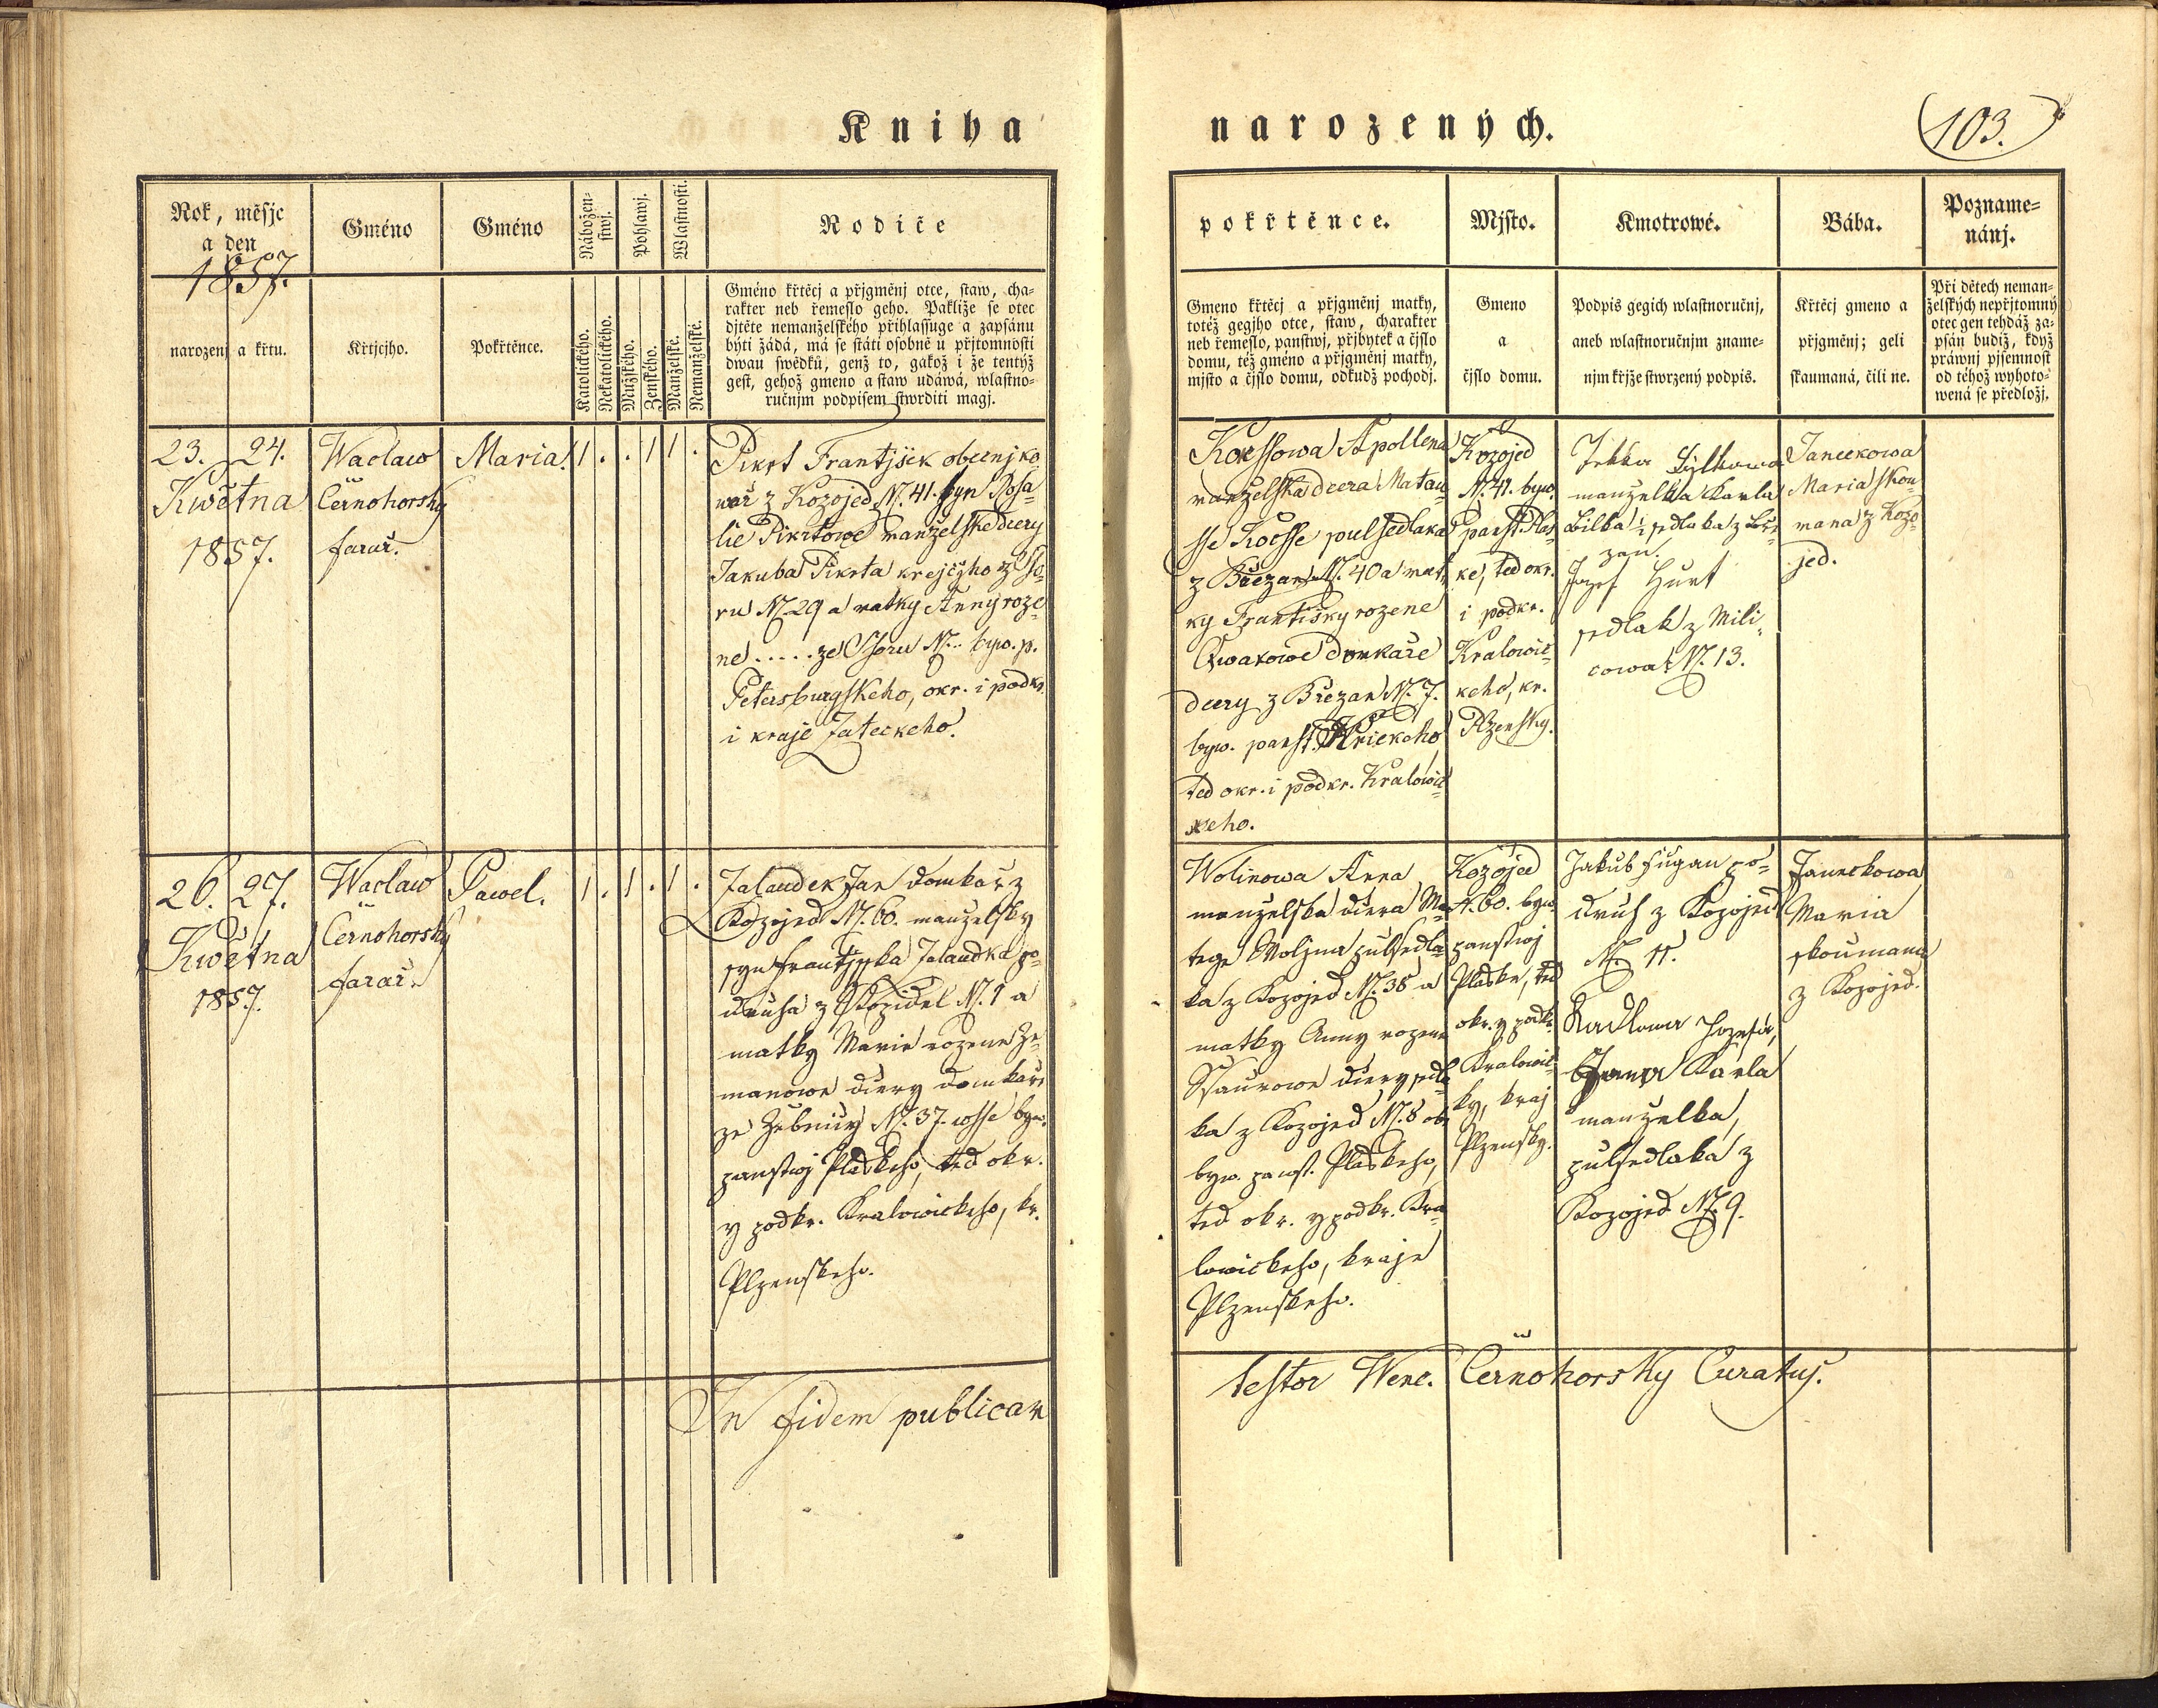 Kniha
narozených.
103.
Rok, měsjc
a den
1857.
narozenj a křtu.
Gméno
Křtjcjho.
Gméno
Pokřtěnce.
Nábožen-
stwj.
Katolického.
Nekatolického.
Pohlawj.
Mužského.
Ženského.
Wlastnosti.
Manželské.
Nemanželské.
Rodiče
Gméno křtěcj a přjgměnj otce, staw, cha-
rakter neb řemeslo geho. Pakliže se otec
djtěte nemanželského přihlassuge a zapsánu
býti žádá, má se státi osobně u přjtomnosti
dwau swědků, genž to, gakož i že tentýž
gest, gehož gmeno a staw udáwá, wlastno-
ručnjm podpisem stwrditi magj.
pokřtěnce.
Gmeno křtěcj a přjgměnj matky,
totéž gegjho otce, staw, charakter
neb řemeslo, panstwj, přjbytek a čjslo
domu, též gméno a přjgměnj matky,
mjsto a čjslo domu, odkudž pochodj.
Mjsto.
Gmeno
a
čjslo domu.
Kmotrowé.
Podpis gegich wlastnoručnj,
aneb wlastnoručnjm zname-
njm křjže stwrzený podpis.
Bába.
Křtěcj gmeno a
přjgměnj; geli
skaumaná, čili ne.
Pozname-
nánj.
Při dětech neman-
želských nepřjtomný
otec gen tehdáž za-
psán budiž, když
práwnj pjsemnost
od téhož wyhoto-
wená se předložj.
23. 24.
Kwětna
1857.
Waclaw
Černohorsky
farař.
Maria.
1 . . 1 1 .
Pikrt Frantjšek obecnj ko
wař z Kozojed N. 41. syn Rosa=
lie Pikrtowe manželske dcery
Jakuba Pikrta krejčjho z
ru N. 29 a matky Anny roze
ne ..... ze N... byw. p.
Petersburgskeho, okr. i podkr.
i kraje Žateckeho.
Apollena
manželska dcera Matau=
sse pulsedlaka
z Břežan N. 40 a mat=
ky Františky rozene
domkaře
dcery z Břežan N. 7.
byw. panst.
ted okr. i podkr. Kralowic=
keho.
Kozojed
N. 41. byw.
panst. Plas=
ke, ted okr.
i podkr.
Kralowic=
keho, kr.
Plzensky.
manželka Karla
Bilka sedlaka z Bře=
zan.
Jozef Hurt
sedlak z Mili=
cowa N. 13.
Janeckowa
Maria skou=
mana z Kozo=
jed.
26. 27.
Kwětna
1857.
Waclaw
Černohorsky
farař.
Pawel.
1 . 1 . 1 .
Jalaudek Jan domkař z
Kozojed N. 60. manželsky
syn Frantisska Jalaudka po=
druha z N. 1 a
matky Marie rozene Ze=
manowe dcery domkaře
ze N. 37. wsse byw.
panstwj Plaskeho, ted okr.
y podkr. Kralowickeho, kr.
Plzenskeho.
Wolinowa Anna
manželska dcera Ma=
tege Woljna pulsedla=
ka z Kozojed N. 38 a
matky Anny rozene
dcery sedla=
ka z Kozojed N. 8
byw. panst. Plaskeho,
ted okr. y podkr. Kra=
lowickeho, kraje
Plzenskeho.
Kozojed
N. 60. byw.
panstwj
Plaske, ted
okr. y podkr.
Kralowic=
ky, kraj
Plzensky.
Jakub po=
druh z Kozojed
N. 11.
Karla
manželka,
pulsedlaka z
Kozojed N. 9.
Janeckowa
Maria
skoumana
z Kozojed.
In fidem publicam
testor Wenc. Černohorsky Curatus.